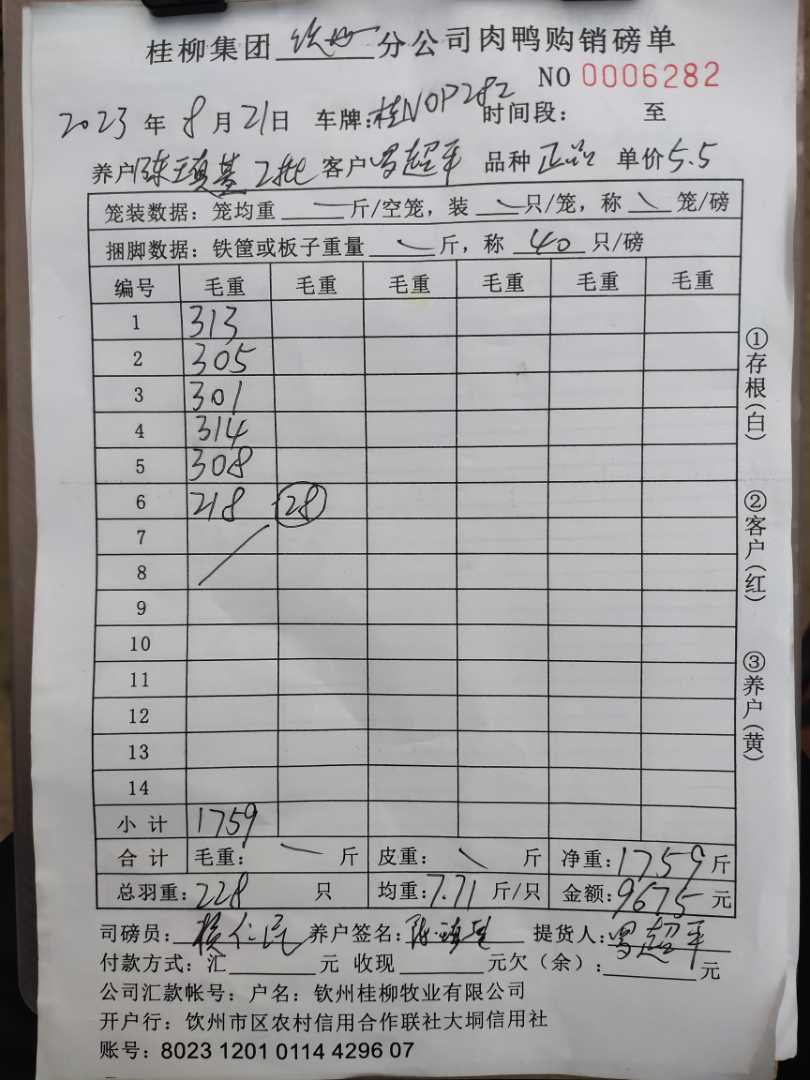 桂柳集团 钦州 分公司肉鸭购销磅单
NO 0006282
2023 年 8 月 21 日 车牌:桂N0P282 时间段: 至
养户 2批 客户 冯超平 品种 正品 单价 5.5
笼装数据: 笼均重 斤/空笼, 装 只/笼, 称 笼/磅
捆脚数据: 铁筐或板子重量 斤, 称 40 只/磅
编号 毛重 毛重 毛重 毛重 毛重 毛重
1 313
2 305
3 301
4 314
5 308
6 218 28
7
8
9
10
11
12
13
14
小计 1759
合计 毛重: 斤 皮重: 斤 净重: 1759 斤
总羽重: 228 只 均重: 7.71 斤/只 金额: 9675 元
司磅员: 养户签名: 提货人: 冯超平
付款方式: 汇 元 收现 元欠（余）: 元
公司汇款帐号: 户名: 钦州桂柳牧业有限公司
开户行: 钦州市区农村信用合作联社大垌信用社
账号: 8023 1201 0114 4296 07
①存根(白)
②客户(红)
③养户(黄)